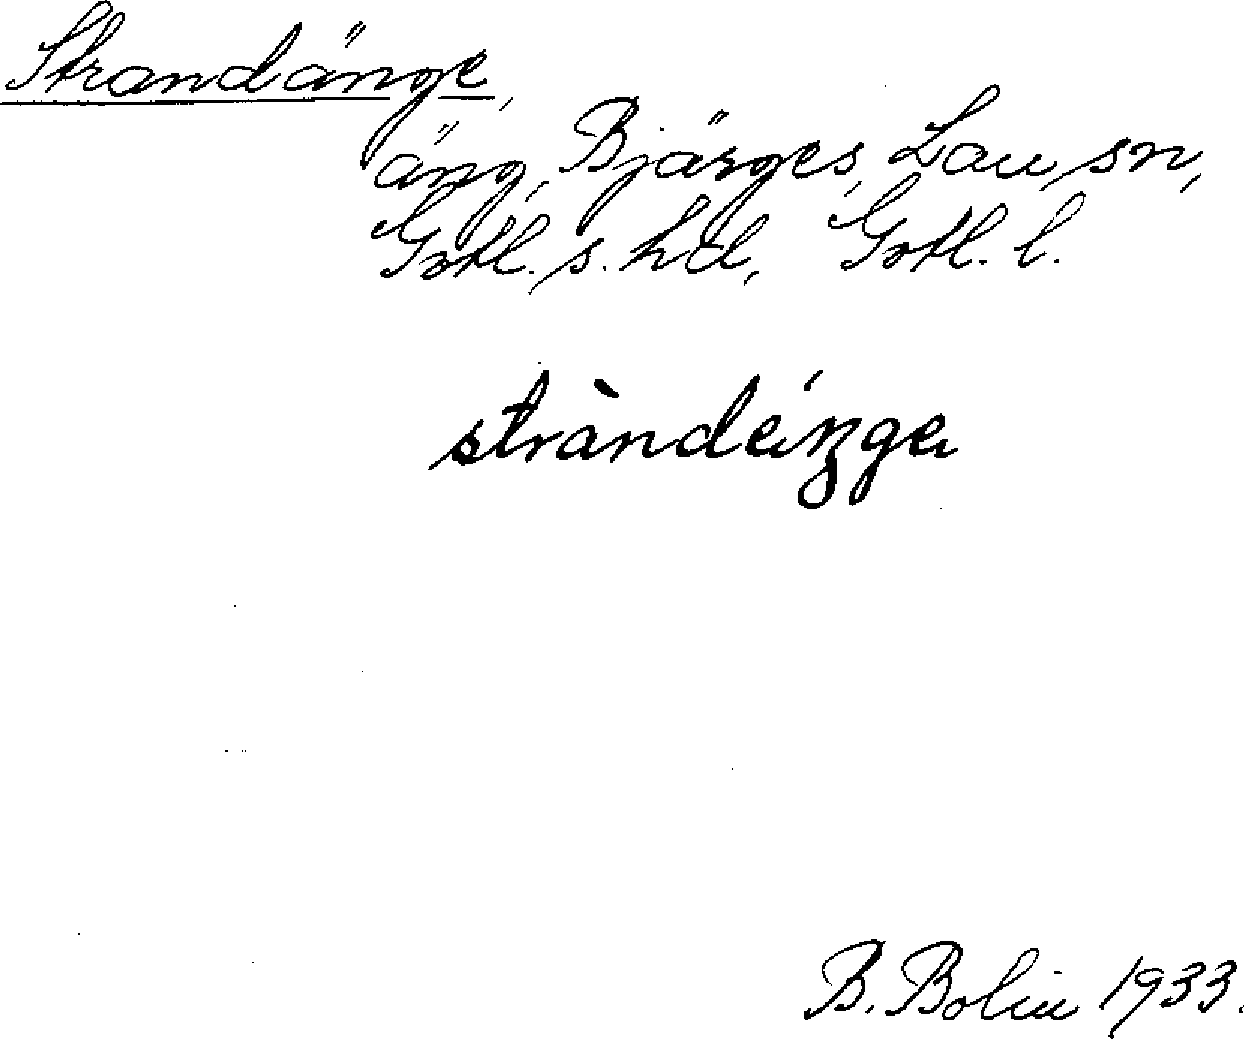 Strandänge,
äng, Bjärges, Lau sn,
Gotl. s. hd, Gotl. l.
stràndéŋge
B. Bolin 1933.